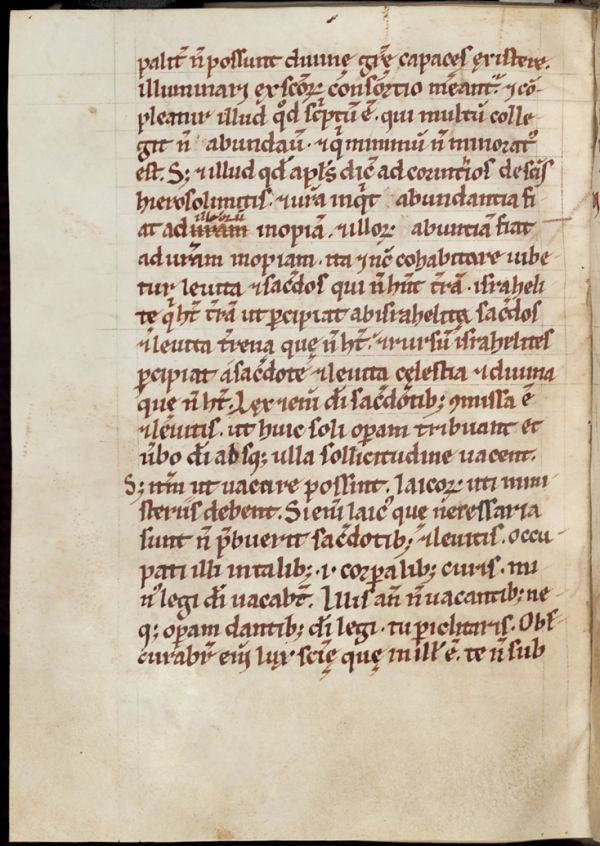 palit̄ n̄ possunt diuinę gr̄ę capaces ęxistere.
illuminari ex sc̄oꝝ consortio mereant᷑. ⁊ cō-
pleatur illud qd̄ scriptū ē. qui multū colle
git n̄ abundauı̄. ⁊ q̇ minimū n̄ minorat᷒
est. S; ⁊ illud qd̄ apl̄s dic̄ ad corinthios de sc̄is
hierosolimitis. ⁊ ur̄a inqt̄ abundantia fi
at ad illorū ur̄am inopiā. ⁊ illoꝝ abuntiā fiat
ad ur̄am inopiam. ita ⁊ nc̄ cohabitare iube
tur leuita ⁊ sac̄dos qui n̄ hn̄t t̄rā. israheli
te q̇ ht̄ t̄rā ut ꝑcipiat ab israhelita sac̄dos
⁊ leuita t̄rena quę n̄ ht̄. ⁊ rursū israhelites
ꝑcipiat a sac̄dote ⁊ leuita cęlestia ⁊ diuina
que n̄ ht̄. Lex etem̄ dı̄ sac̄dotib; ꝯmissa ē
⁊ leuitis. ut huic soli oꝑam tribuant et
ūbo dı̄ absq; ulla sollicitudine uacent.
S; tm̄ ut uacare possint. laicoꝝ uti mini
steriis debent. Si em̄ laic᷒ que necessaria
sunt n̄ p̄buerit sac̄dotib; ⁊ leuitis. occu-
pati illi in talib; .i. corꝑalib; curis. mi
n᷒ legi dı̄ uacabt̄. Illis aū n̄ uacantib; ne
q; oꝑam dantib; dı̄ legi. tu ꝑiclitaris. Obs-
curabr̄ em̄ lux scię quę in ill̄ ē. te n̄ sub